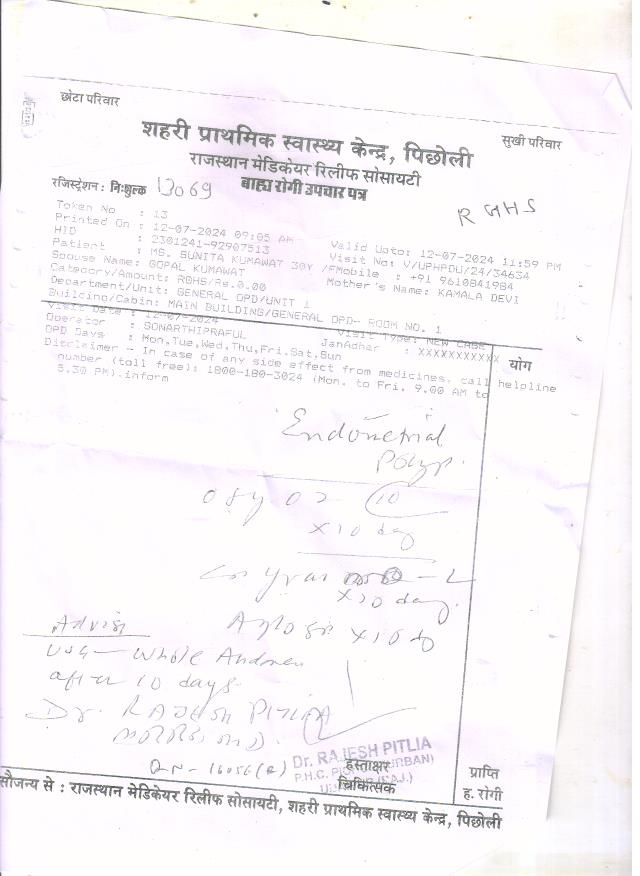 छोटा परिवार
सुखी परिवार
शहरी प्राथमिक स्वास्थ्य केन्द्र, पिछोली
राजस्थान मेडिकेयर रिलीफ सोसायटी
रजिस्ट्रेशन : निःशुल्क 13069 बाह्य रोगी उपचार पत्र
RGHS
Token No : 13
Printed On : 12-07-2024 09:05 AM Valid Upto: 12-07-2024 11:59 PM
HID : 2301241-92907513 Visit No: V/UPHPDU/24/34634
Patient : MS. SUNITA KUMAWAT 30Y /F Mobile : +91 9610841984
Spouse Name: GOPAL KUMAWAT Mother's Name: KAMALA DEVI
Category/Amount: RGHS/Rs.0.00
Department/Unit: GENERAL OPD/UNIT 1
Building/Cabin: MAIN BUILDING/GENERAL OPD- ROOM NO. 1
Visit Date : 12-07-2024 Visit Type: NEW CASE
Operator : SONARTHIPRAFUL JanAdhar : XXXXXXXXXXX
योग
OPD Days : Mon,Tue,Wed,Thu,Fri,Sat,Sun
Disclaimer - In case of any side effect from medicines, call helpline
number (toll free): 1800-180-3024 (Mon. to Fri. 9.00 AM to
5.30 PM).inform
Endometrial
Polyp.
10
x 10 day
x 10 day.
x 10 d
Advise
USG - Whole Abdomen
after 10 days
Dr. RAJESH PITLIA
Dr. RAJESH PITLIA
हस्ताक्षर
चिकित्सक
प्राप्ति
ह. रोगी
सौजन्य से : राजस्थान मेडिकेयर रिलीफ सोसायटी, शहरी प्राथमिक स्वास्थ्य केन्द्र, पिछोली